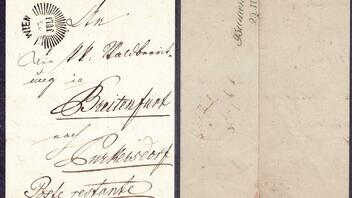 WIEN
JULI
An
die k.k. Waldbereit-
ung in
Breitenfurt
nach
Purkersdorf
Poste restante